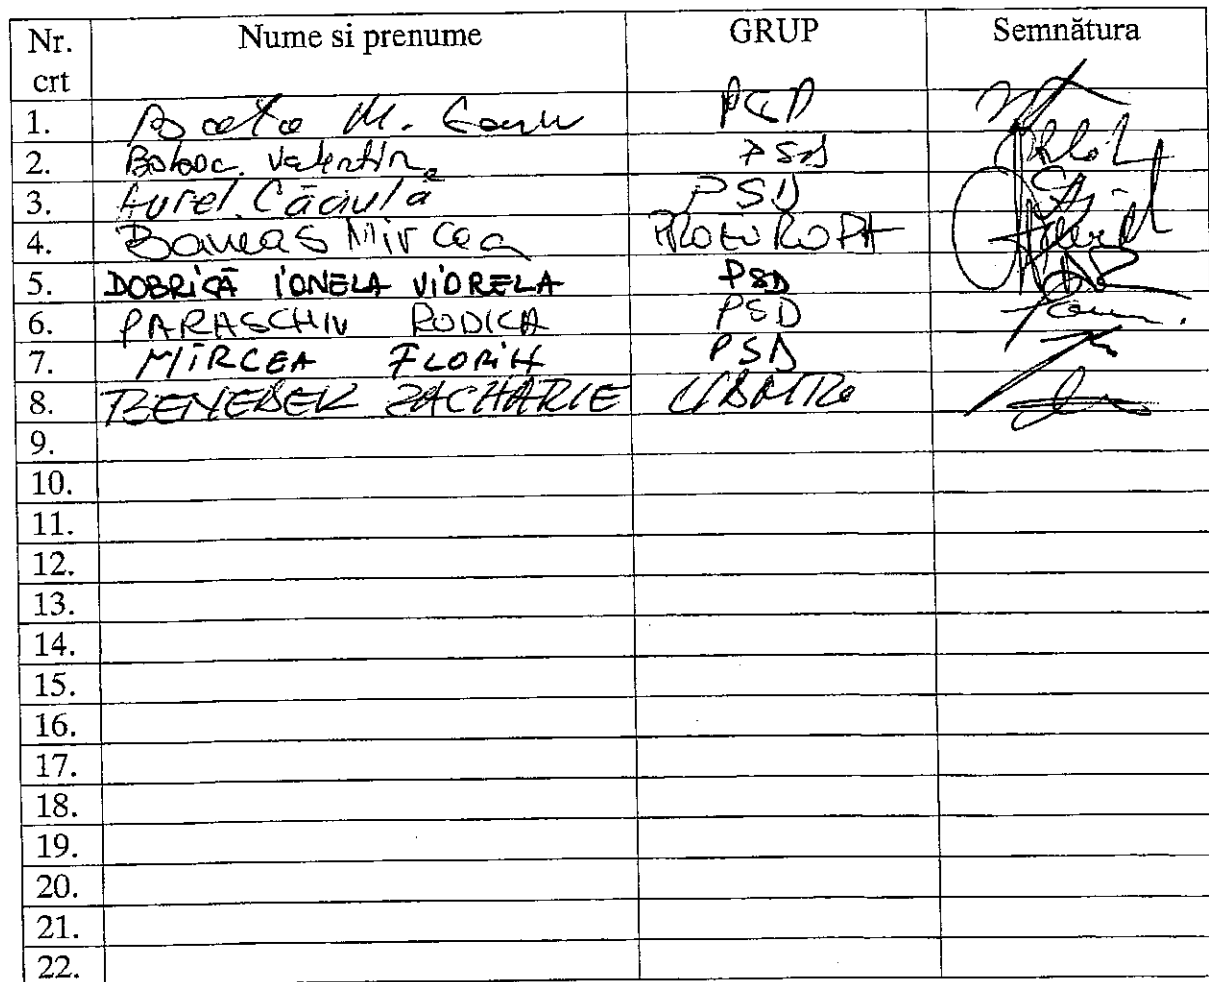 Nr. crt Nume si prenume GRUP Semnătura
1. M. PSD
2. Boboc Valentin PSD
3. Aurel Căciulă PSD
4. Banias Mircea PROEUROPA
5. DOBRICĂ IONELA VIORELA PSD
6. PARASCHIV RODICA PSD
7. MIRCEA FLORIN PSD
8. BENEDEK ZACHARIE UDMR
9.
10.
11.
12.
13.
14.
15.
16.
17.
18.
19.
20.
21.
22.